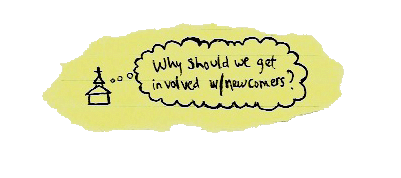 Why should we get
involved w/newcomers?